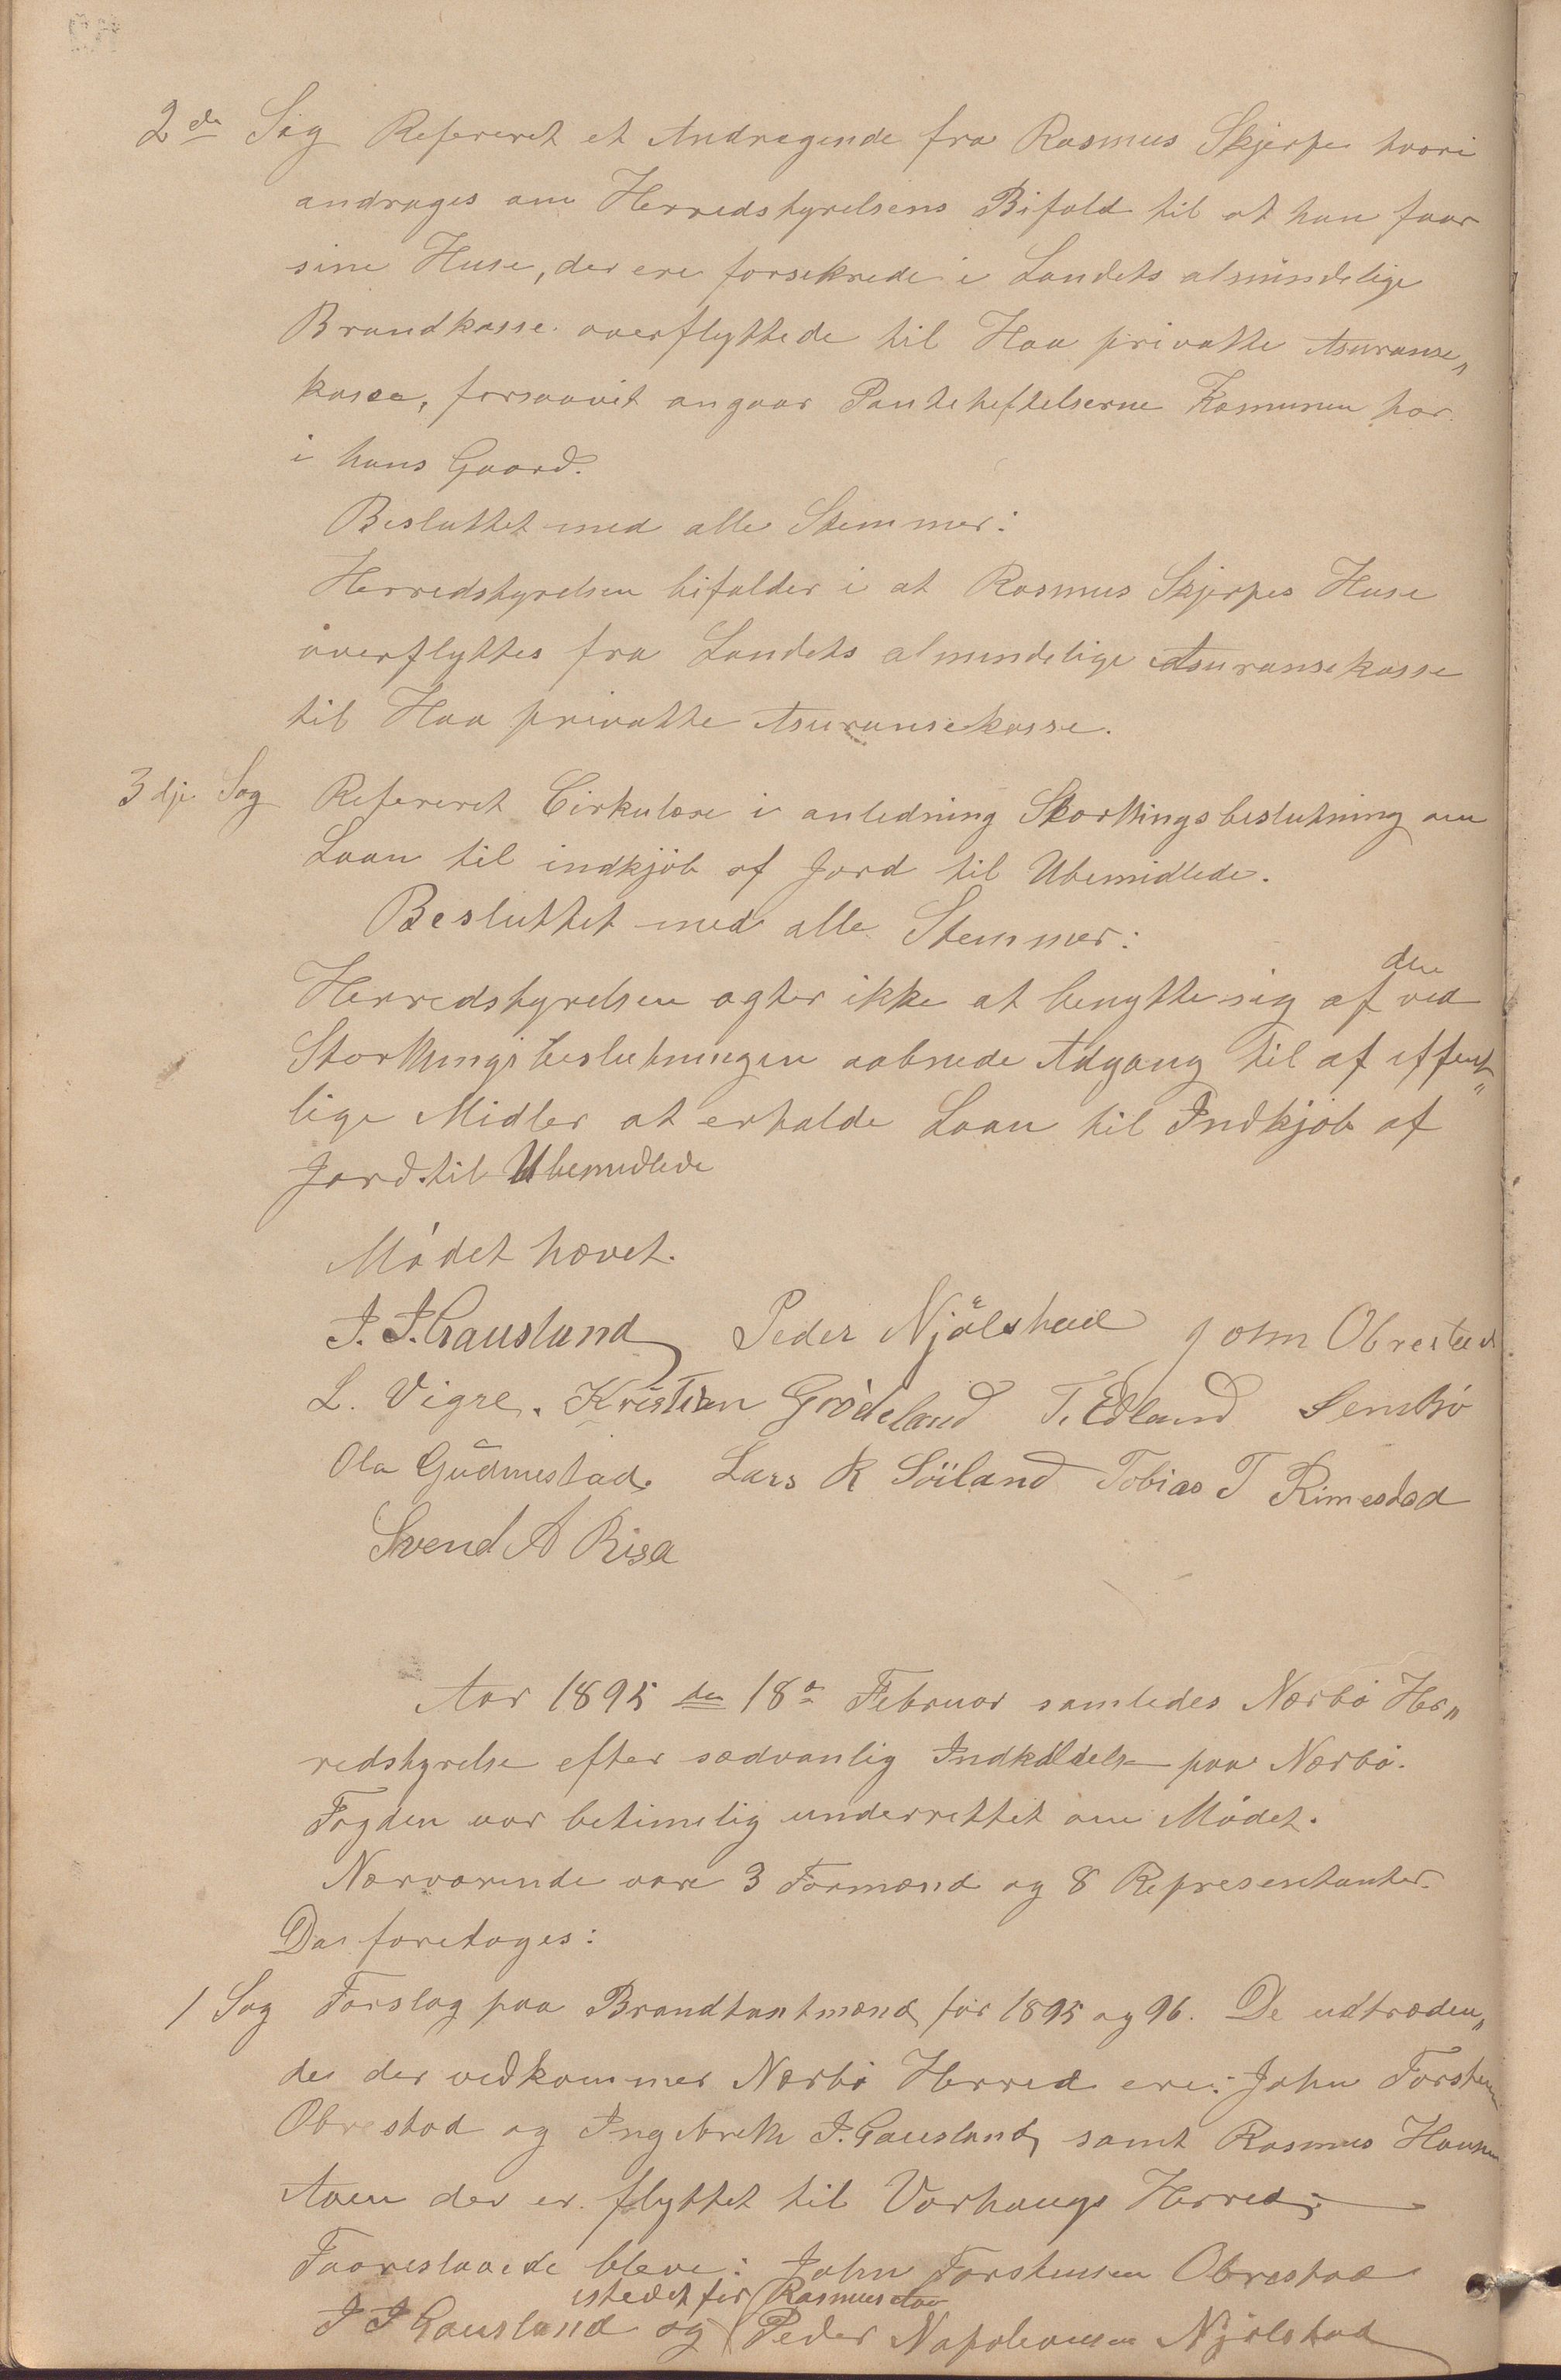 2de Sag Refereret et Andragende fra Rasmus Skjerpe hvori
andrages om Herredstyrelsens Bifald til at han faar
sine Huse, der ere forsekrede i Landets almindelige
Brandkasse overflyttede til Haa privatte Asuranse„
kasse, forsaavit angaar Panteheftelserne Komunen har
i hans Gaard.
Besluttet med alle Stemmer:
Herredstyrelsen bifalder i at Rasmus Skjerpes Huse
overflyttes fra Landets almindelige Asuransekasse
til Haa privatte Asuransekasse.
3dje Sag Refereret Cirkulære i anledning Storthingsbeslutning om
Laan til indkjöb af Jord til Ubemidlede.
Besluttet med alle Stemmer:
Herredstyrelsen agter ikke at benytte sig af den ved
Storthingsbeslutningen aabnede Adgang til af offent„
lige Midler at erholde Laan til Indkjöb af
Jord til Ubemidlede
Mödet hævet.
J. J. Gausland Peder Njölstad John Obrestad
L. Vigre. Kristian Grödeland T. Edland Semsö
Ola Gudmestad. Lars R Söiland Tobias T Rimestad
Svend A Risa
Aar 1895 den 18de Februar samledes Nærbö Her„
redstyrelse efter sædvanlig Indkaldelse paa Nærbö.
Fogden var betimelig underrettet om Mödet.
Nærværende vare 3 Formænd og 8 Representanter.
Da foretoges:
1 Sag Forslag paa Brandtaxtmænd for 1895 og 96. De udtræden„
de der vedkommer Nærbö Herred ere: John Torstensen
Obrestad og Ingebreth J. Gausland, samt Rasmus Hansen
Aaen der er flyttet til Varhaugs Herred;
Faareslaaede bleve: John Torstensen Obrestad
istedet for Rasmus Aaen
J J Gausland og Peder Napoleonsen Njölstad